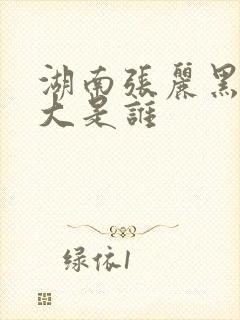 湖南張麗黑
大是誰
绿依1